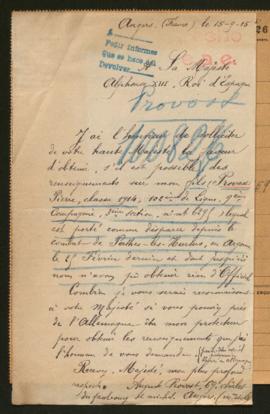 Angers, (France) le 15-9-15
A
Pedir informes
que se hace por
Devolver
A Sa Majesté
Alphonse XIII, Roi d'Espagne
Provost
J'ai l'honneur de solliciter
de votre haute Majesté la faveur
d'obtenir, s'il est possible, des
renseignements sur mon fils Provost
Pierre, classe 1914, 102ème de Ligne, 9ème
Compagnie, 3ème section, lequel
est porté comme disparu depuis le
combat de Perthes-les-Hurlus, en
le 25 Février dernier et dont jusqu'ici
nous n'avons pu obtenir rien d'Officiel
Combien je vous serais reconnaissant
à votre Majesté si vous pouviez près
de l'Allemagne être mon protecteur
pour obtenir les renseignements que j'ai
l'honneur de vous demander.
Recevez, Majesté, mon plus profond
respect. Auguste Provost, 69,
du faubourg St Michel. Angers